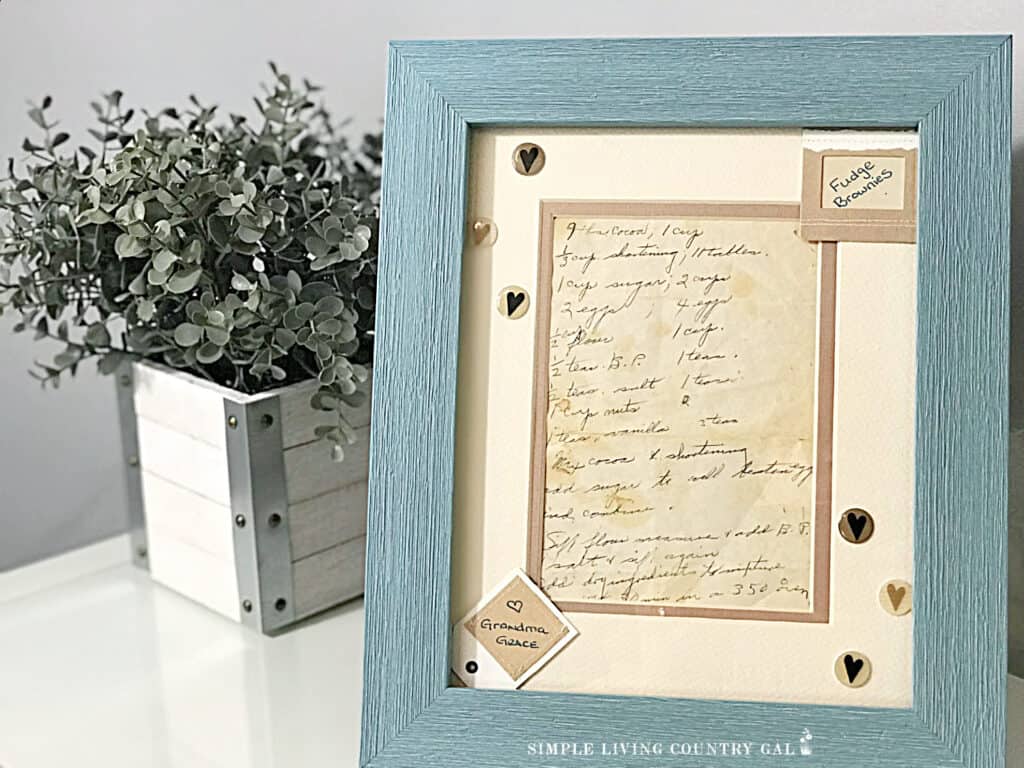 Fudge
Brownies
9 tbs cocoa, 1 cup
1/3 cup shortening,
1 cup sugar; 2 cups
2 eggs ; 4 eggs
flour 1 cup.
1/2 teas. B.P. 1 teas.
teas. salt 1 teas.
cup nuts 2
teas. vanilla teas
Mix cocoa & shortening
add sugar to well beaten egg
and combine.
Sift flour measure & add B.P.
salt & sift again
add dry ingredients to mixture
min in a 350 oven
♡
Grandma
Grace
SIMPLE LIVING COUNTRY GAL